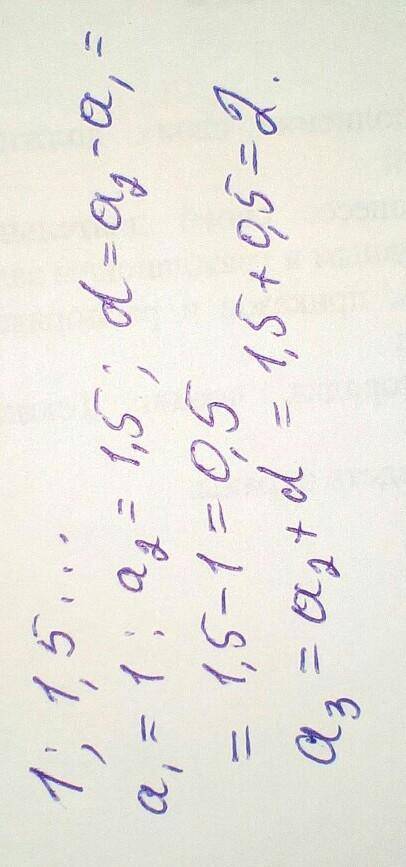 1; 1,5 ...
a₁ = 1; a₂ = 1,5; d = a₂ - a₁ =
= 1,5 - 1 = 0,5
a₃ = a₂ + d = 1,5 + 0,5 = 2.